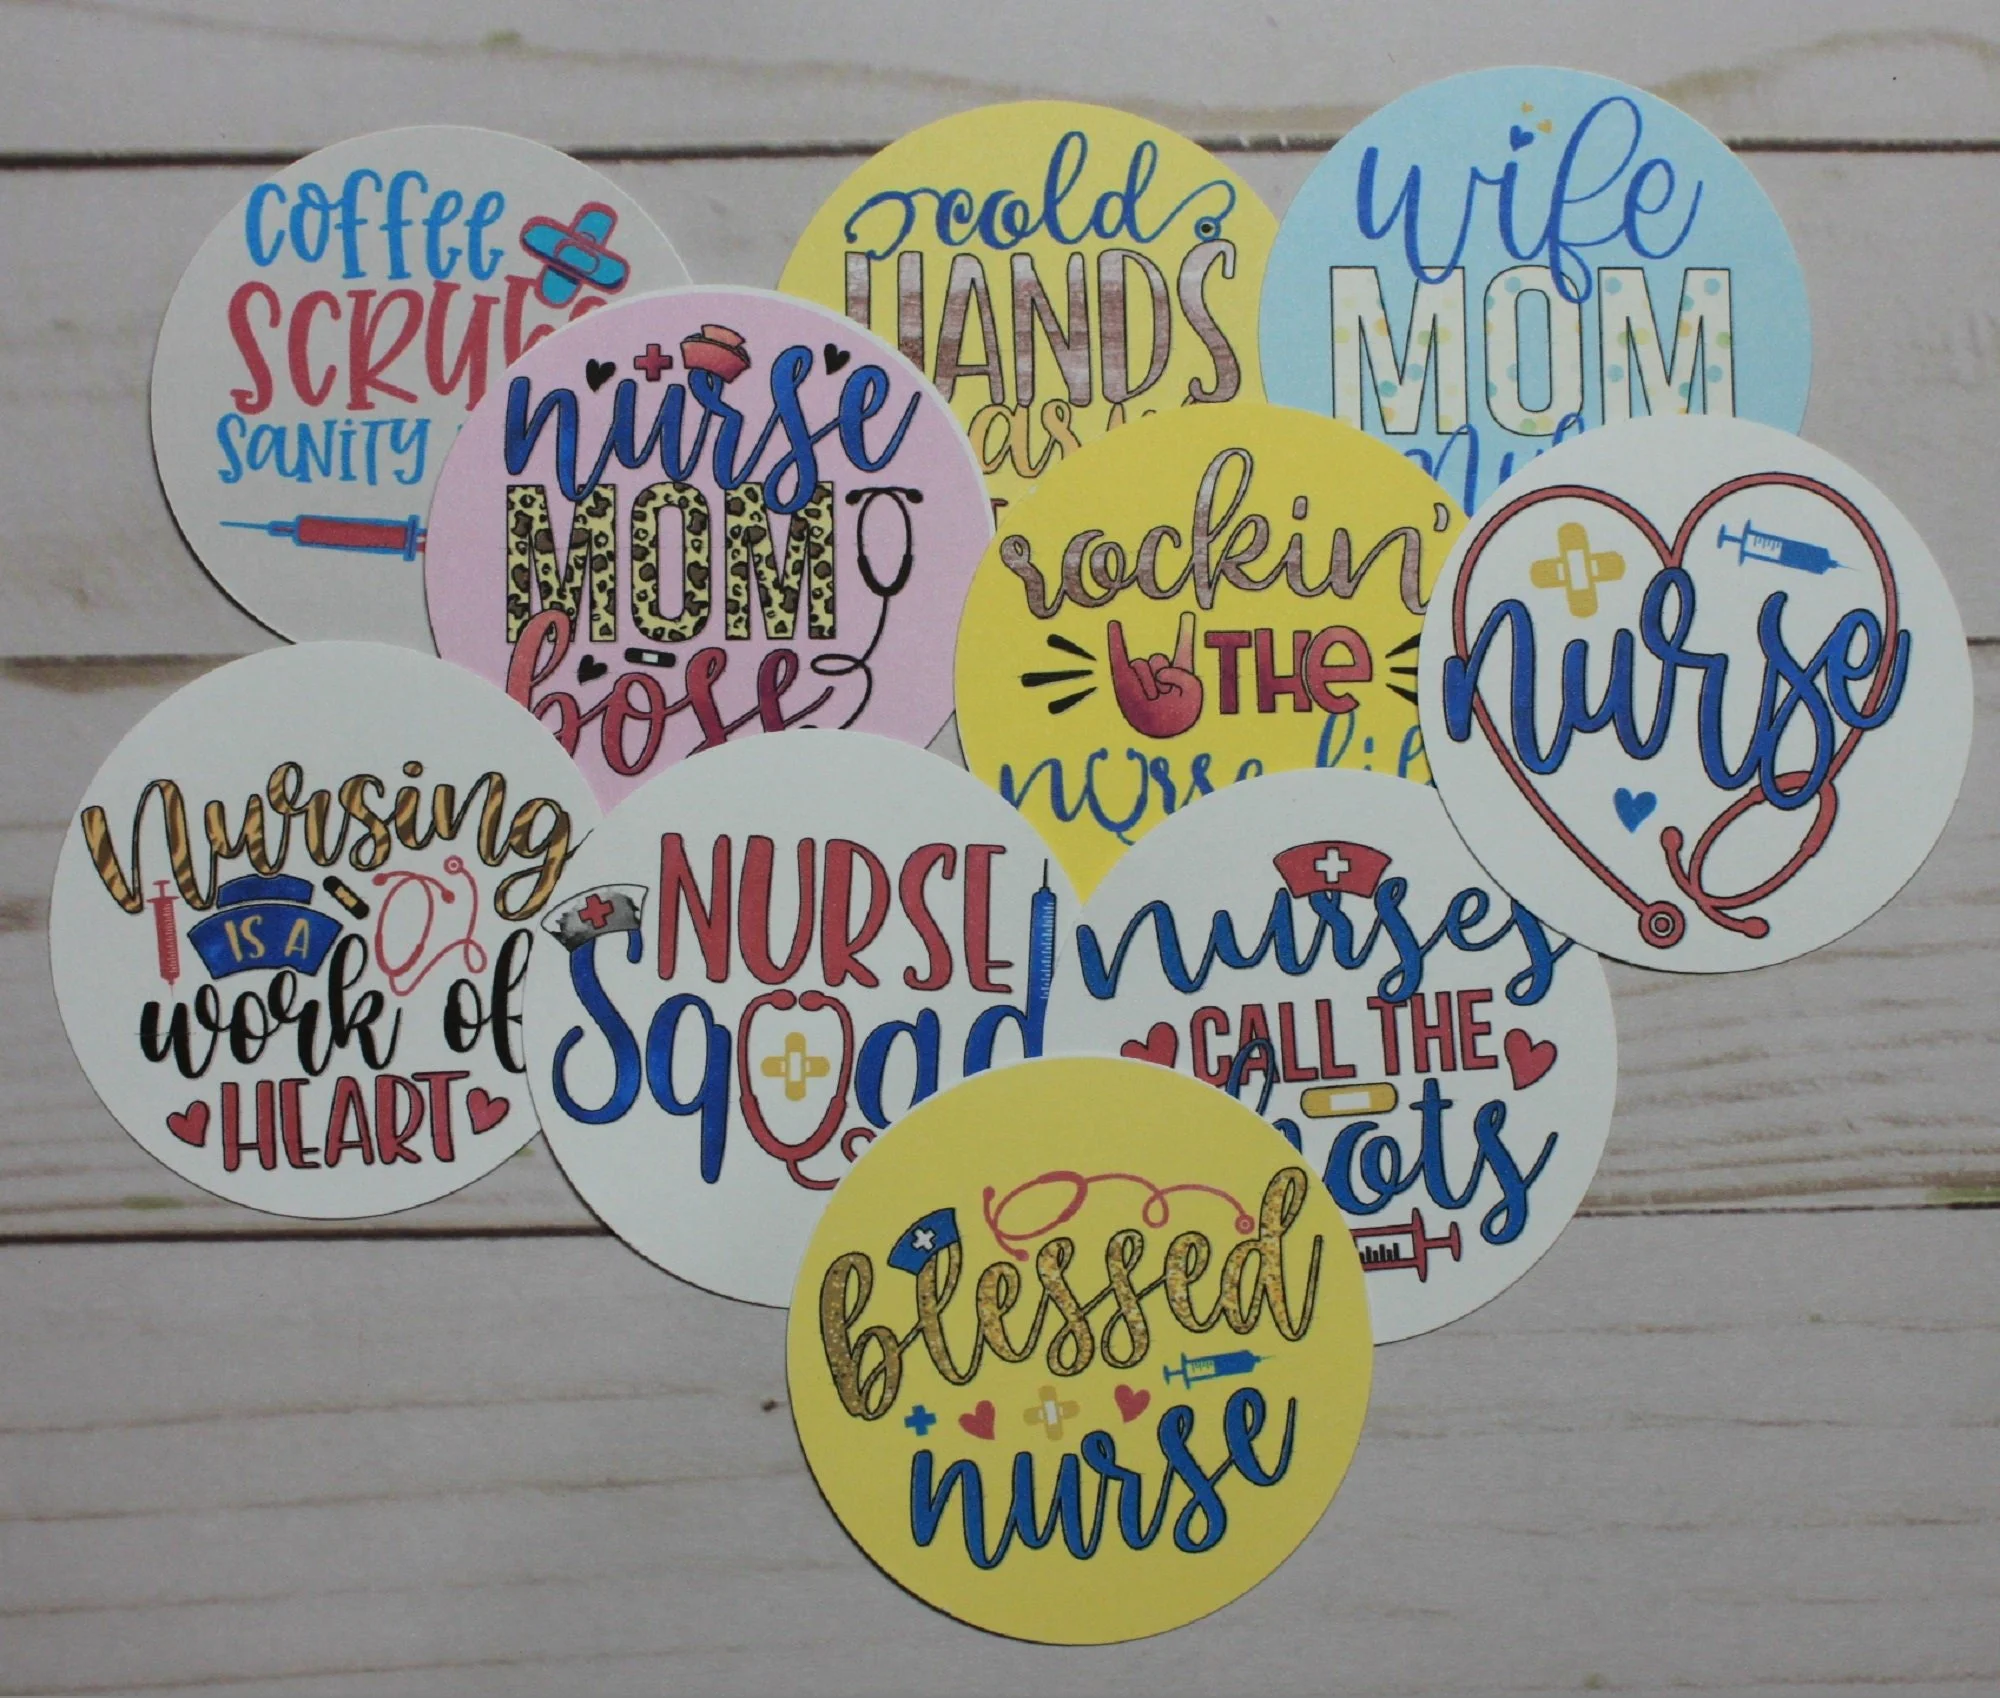 coffee
SCRUbs
SANiTY
cold
HANDS
as
wife
MOM
nurse
MOM
boss
rockin'
THe
nurse life
nurse
Nursing
IS A
work of
HEART
NURSE
Squad
nurses
CALL THE
shots
blessed
nurse